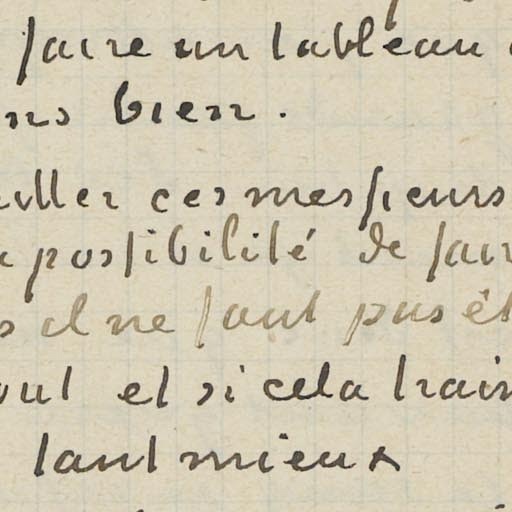 faire un tableau
ns bien.
ces messieurs
possibilité de fair
s il ne faut pas êt
out et si cela train
tant mieux